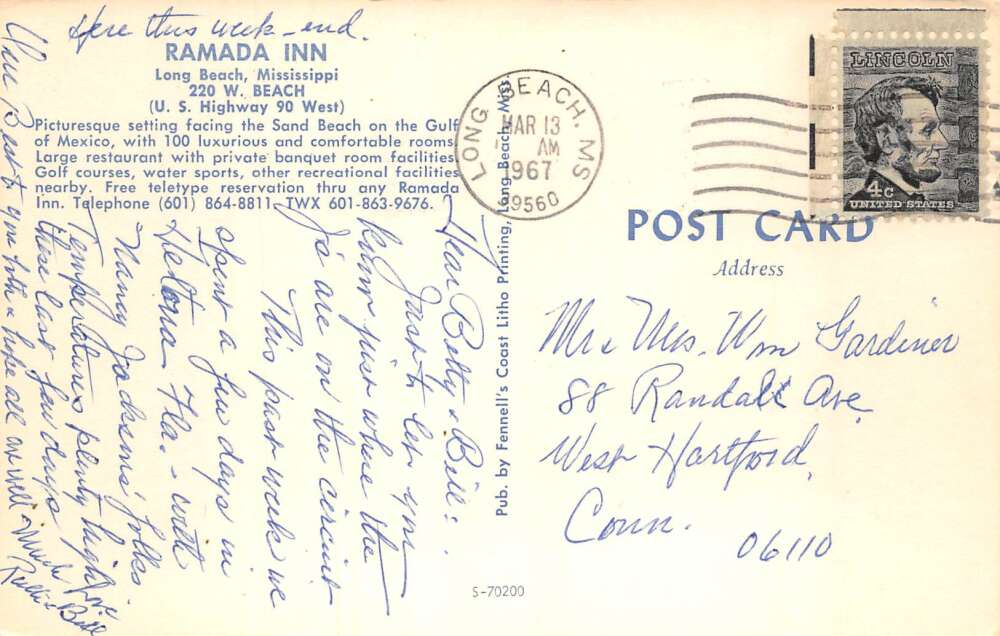 Here this week-end.
RAMADA INN
Long Beach, Mississippi
220 W. BEACH
(U. S. Highway 90 West)
Picturesque setting facing the Sand Beach on the Gulf
of Mexico, with 100 luxurious and comfortable rooms
Large restaurant with private banquet room facilities
Golf courses, water sports, other recreational facilities
nearby. Free teletype reservation thru any Ramada
Inn. Telephone (601) 864-8811 TWX 601-863-9676.
Dear Betty & Bill:
Just to let you
know just where the
J's are on the circuit
This past week we
spent a few days in
Fla. - with
Nancy Jackson's folks
Temperatures plenty high
these last few days
Best to you both & hope all are well - Much love
Bill
Pub. by Fennell's Coast Litho Printing, Long Beach, Miss.
LONG BEACH, MS
MAR 13
AM
1967
39560
LINCOLN
4c
UNITED STATES
POST CARD
Address
Mr & Mrs. Wm Gardiner
88 Randall Ave
West Hartford,
Conn.
06110
S-70200